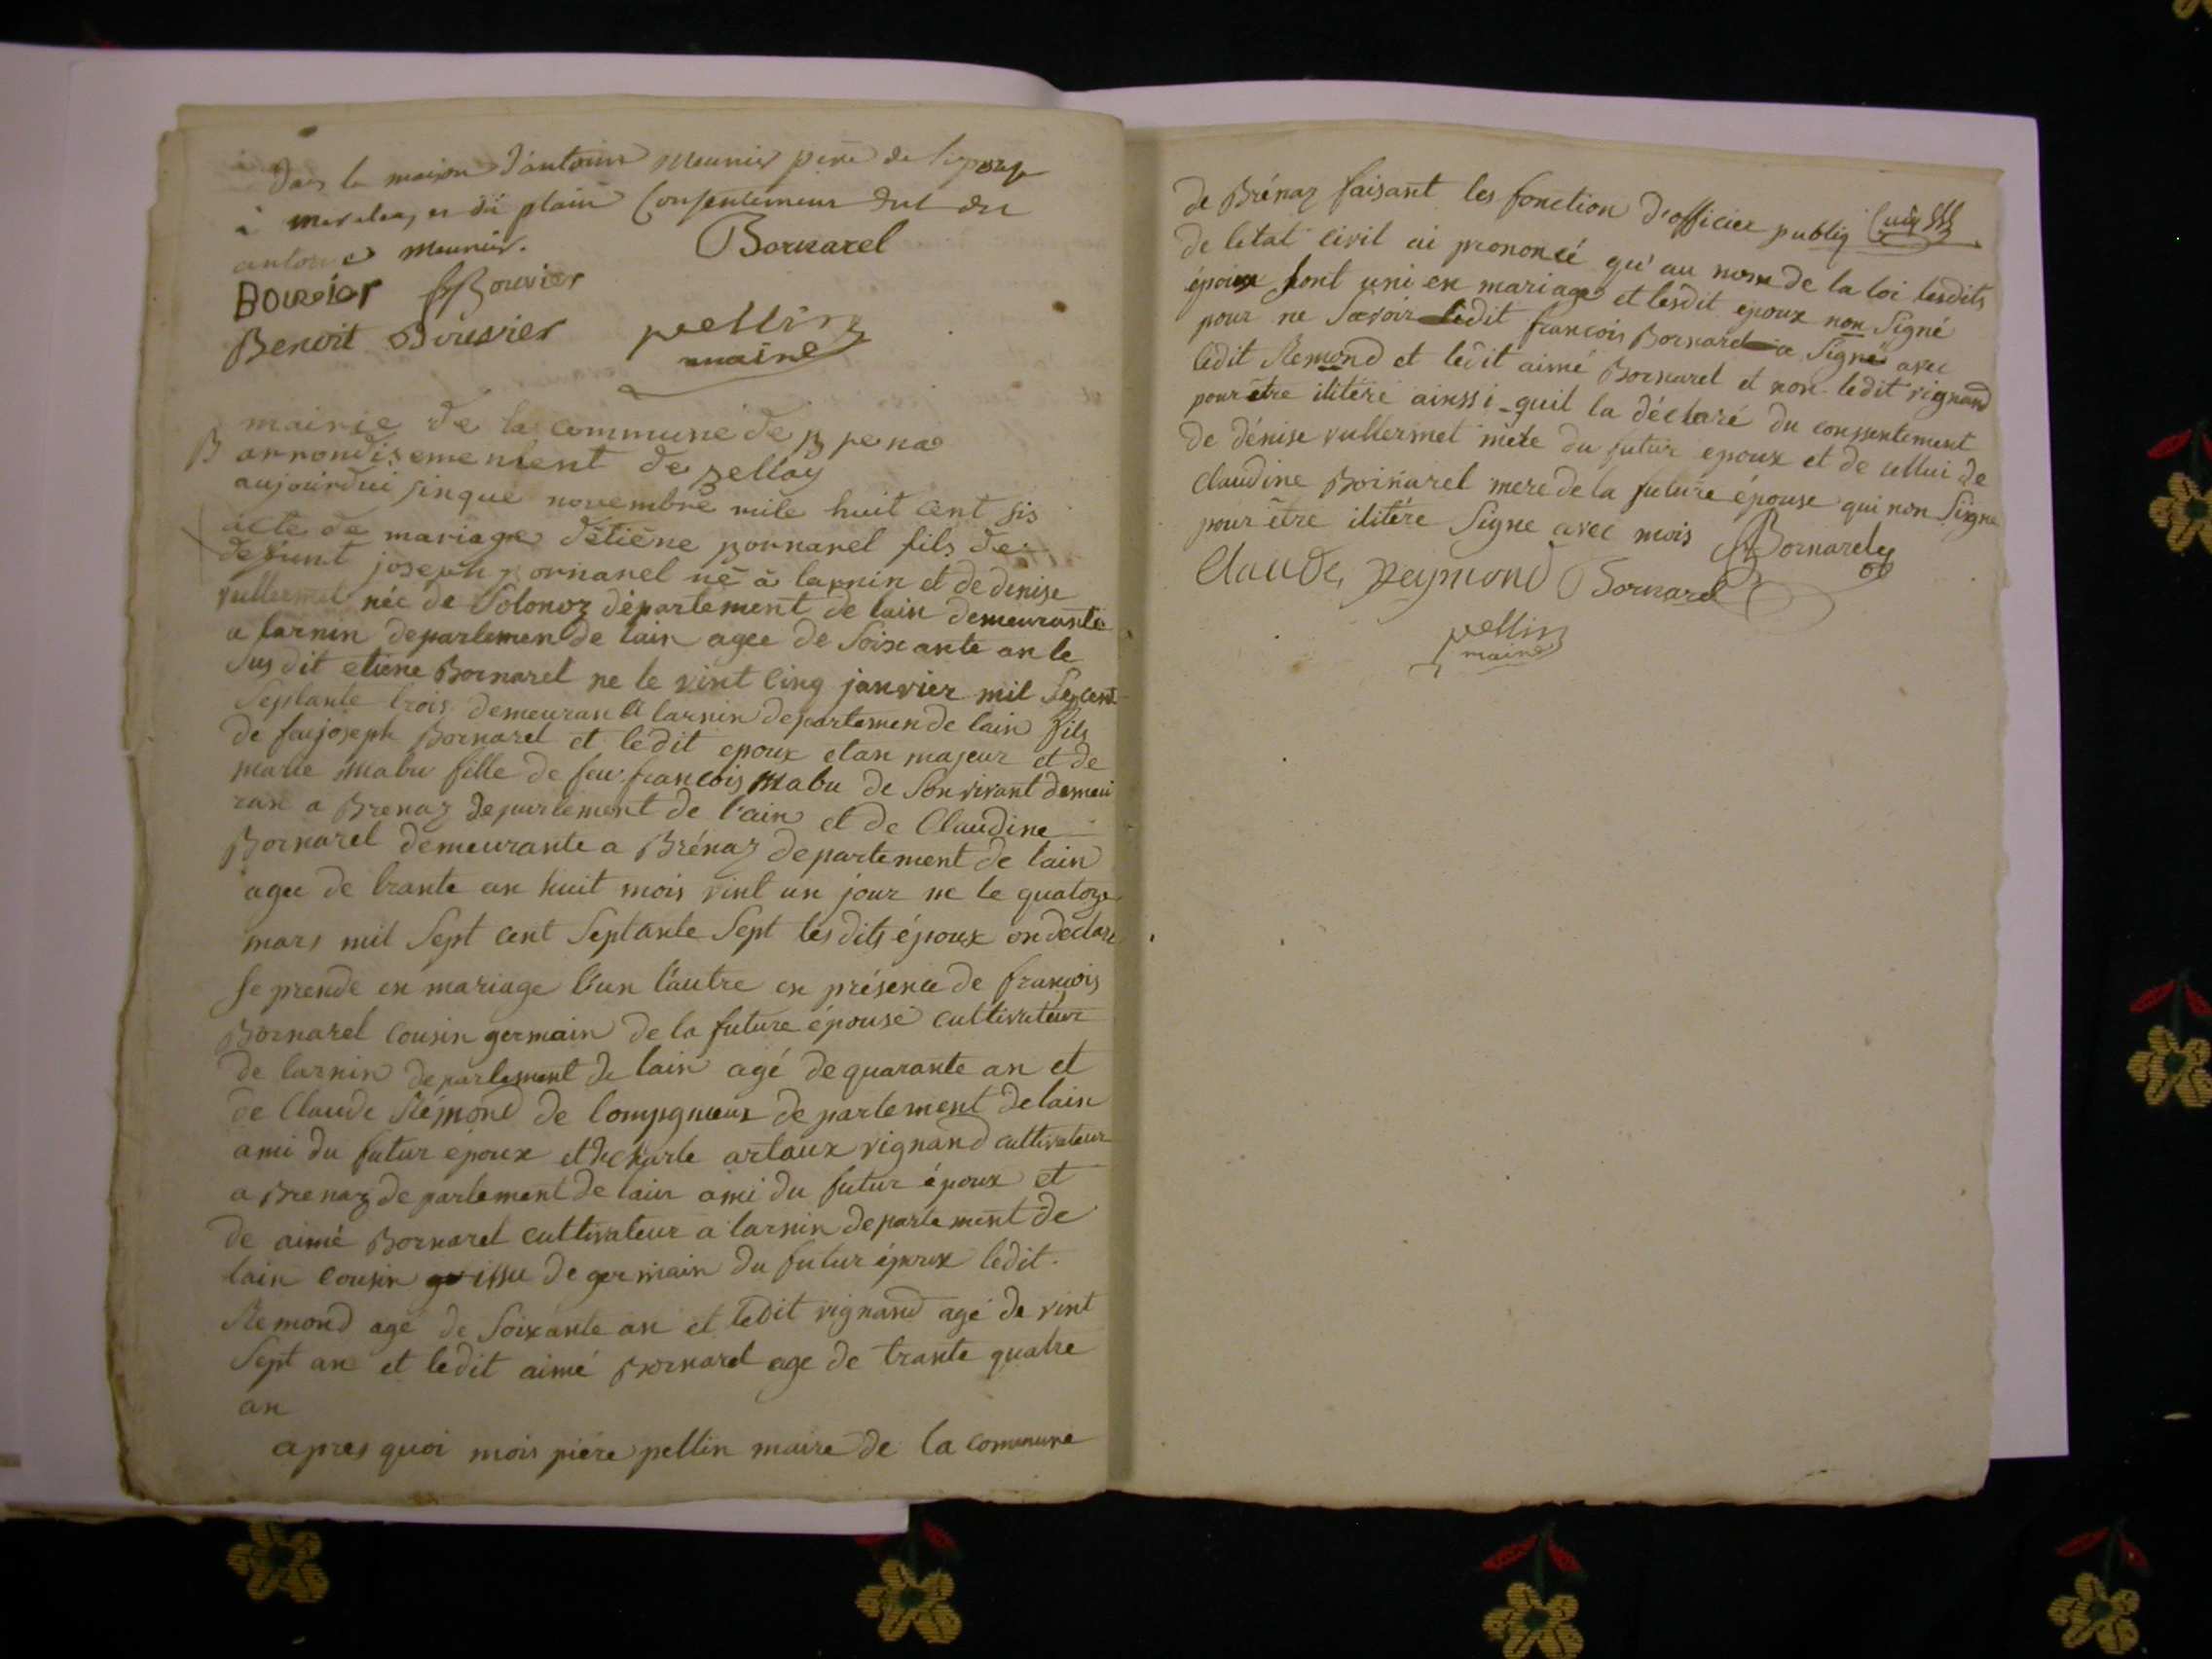 dans la maison d'antoine meunier père de l'epouse
à et du plain consentement dud du
antoine meunier.
Bornarel
Bouvier Bouvier
Benoit Bouvier pellin
maire
mairie de la commune de Brena
B arrondisemenlent de Bellay
aujourdui sinque novembre mile huit cent sis
acte de mariage d'étiêne Bornarel fils de
defunt joseph Bornarel né à larnin et de denise
vullermet née de Solonoz département de lain demeurante
a larnin departemen de lain agee de Soixante an le
Sus dit etiene Bornarel ne le vint cinq janvier mil Sepcent
Septante trois demeurant a larnin departemen de lain fils
de feu joseph Bornarel et ledit epoux etan majeur et de
marie mabu fille de feu francois Mabu de Son vivant demeu
ran a Brenaz departement de l'ain et de Claudine
Bornarel demeurante a Brénaz departement de l'ain
agee de trante an huit mois vint un jour ne le quatorze
mars mil Sept cent Septante Sept les dits époux on declare
Se prende en mariage l'un l'autre en présence de francois
Bornarel cousin germain de la future épouse cultivateur
de larnin departement de lain agé de quarante an et
de Claude Rémond de Compgnoux departement de lain
ami du futur epoux et de charle artaux vignand cultivateur
a Brenaz departement de lain ami du futur époux et
de aimé Bornarel cultivateur a larnin departement de
lain cousin ge issu de germain du futur époux ledit
Remond age de Soixante an et ledit vignand agé de vint
Sept an et ledit aimé Bornarel age de trante quatre
an
apres quoi mois piere pellin maire de la commune
de Brénaz faisant les fonction d'officier publiq
de letat civil ai prononcé qu'au nom de la loi lesdits
époux sont uni en mariage et lesdit epoux non Signé
pour ne Savoir ledit francois Bornarel a Signé avec
ledit Remond et ledit aimé Bornarel et non ledit vignand
pour être ilitére ainssi quil la déclaré du conssentement
de dénise vullermet mère du futur epoux et de cellui de
Claudine Bornarel mere de la future épouse qui non Signe
pour être ilitére Signe avec mois Bornarel
Claude Reymond Bornarel
pellin
maire